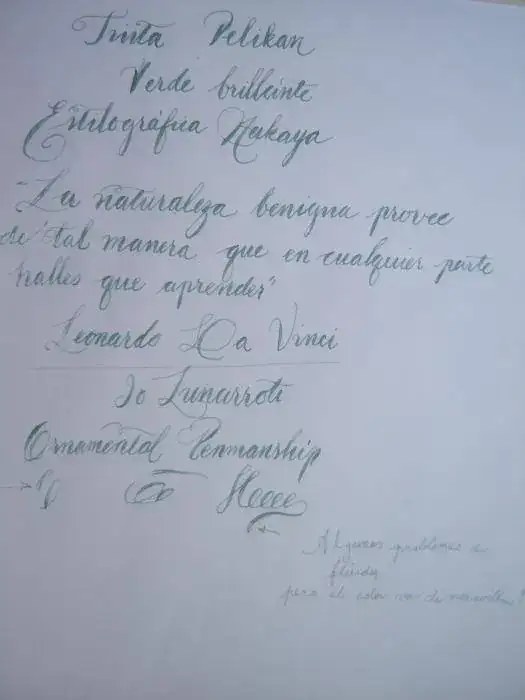 Tinta Pelikan
Verde brillante
Estilográfica Nakaya
"La naturaleza benigna provee
de tal manera que en cualquier parte
halles que aprender"
Leonardo Da Vinci
Jo Lunarroti
Ornamental Penmanship
Algunos problemas de
fluidez
pero el color es de maravilla!